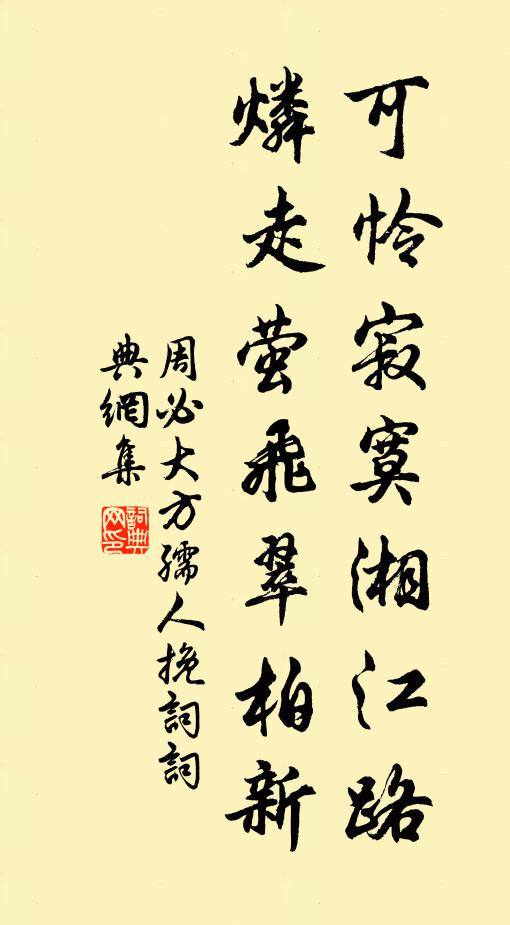 可怜寂寞湘江路
燐走萤飛翠柏新
周必大方孺人挽詞詞
典網集
詞典
网印